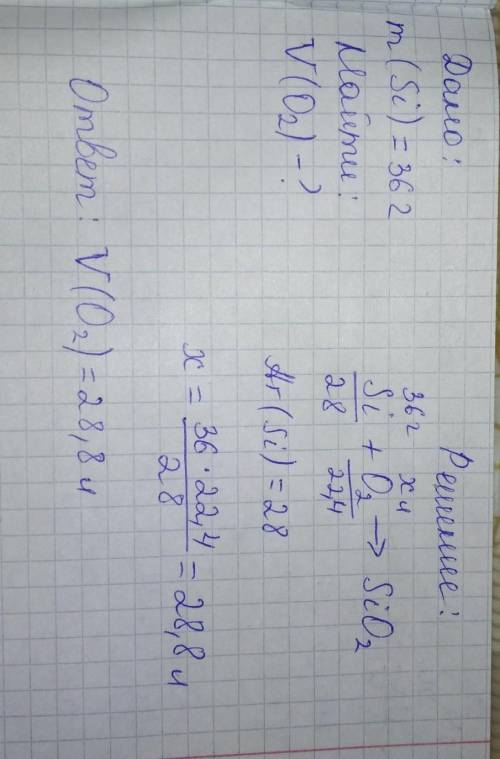 Дано:
m(Si) = 36г
Найти:
V(O₂) - ?
Решение:
36г xл
Si + O₂ → SiO₂
28 22,4
Ar(Si) = 28
x = 36·22,4 / 28 = 28,8 л
Ответ: V(O₂) = 28,8 л